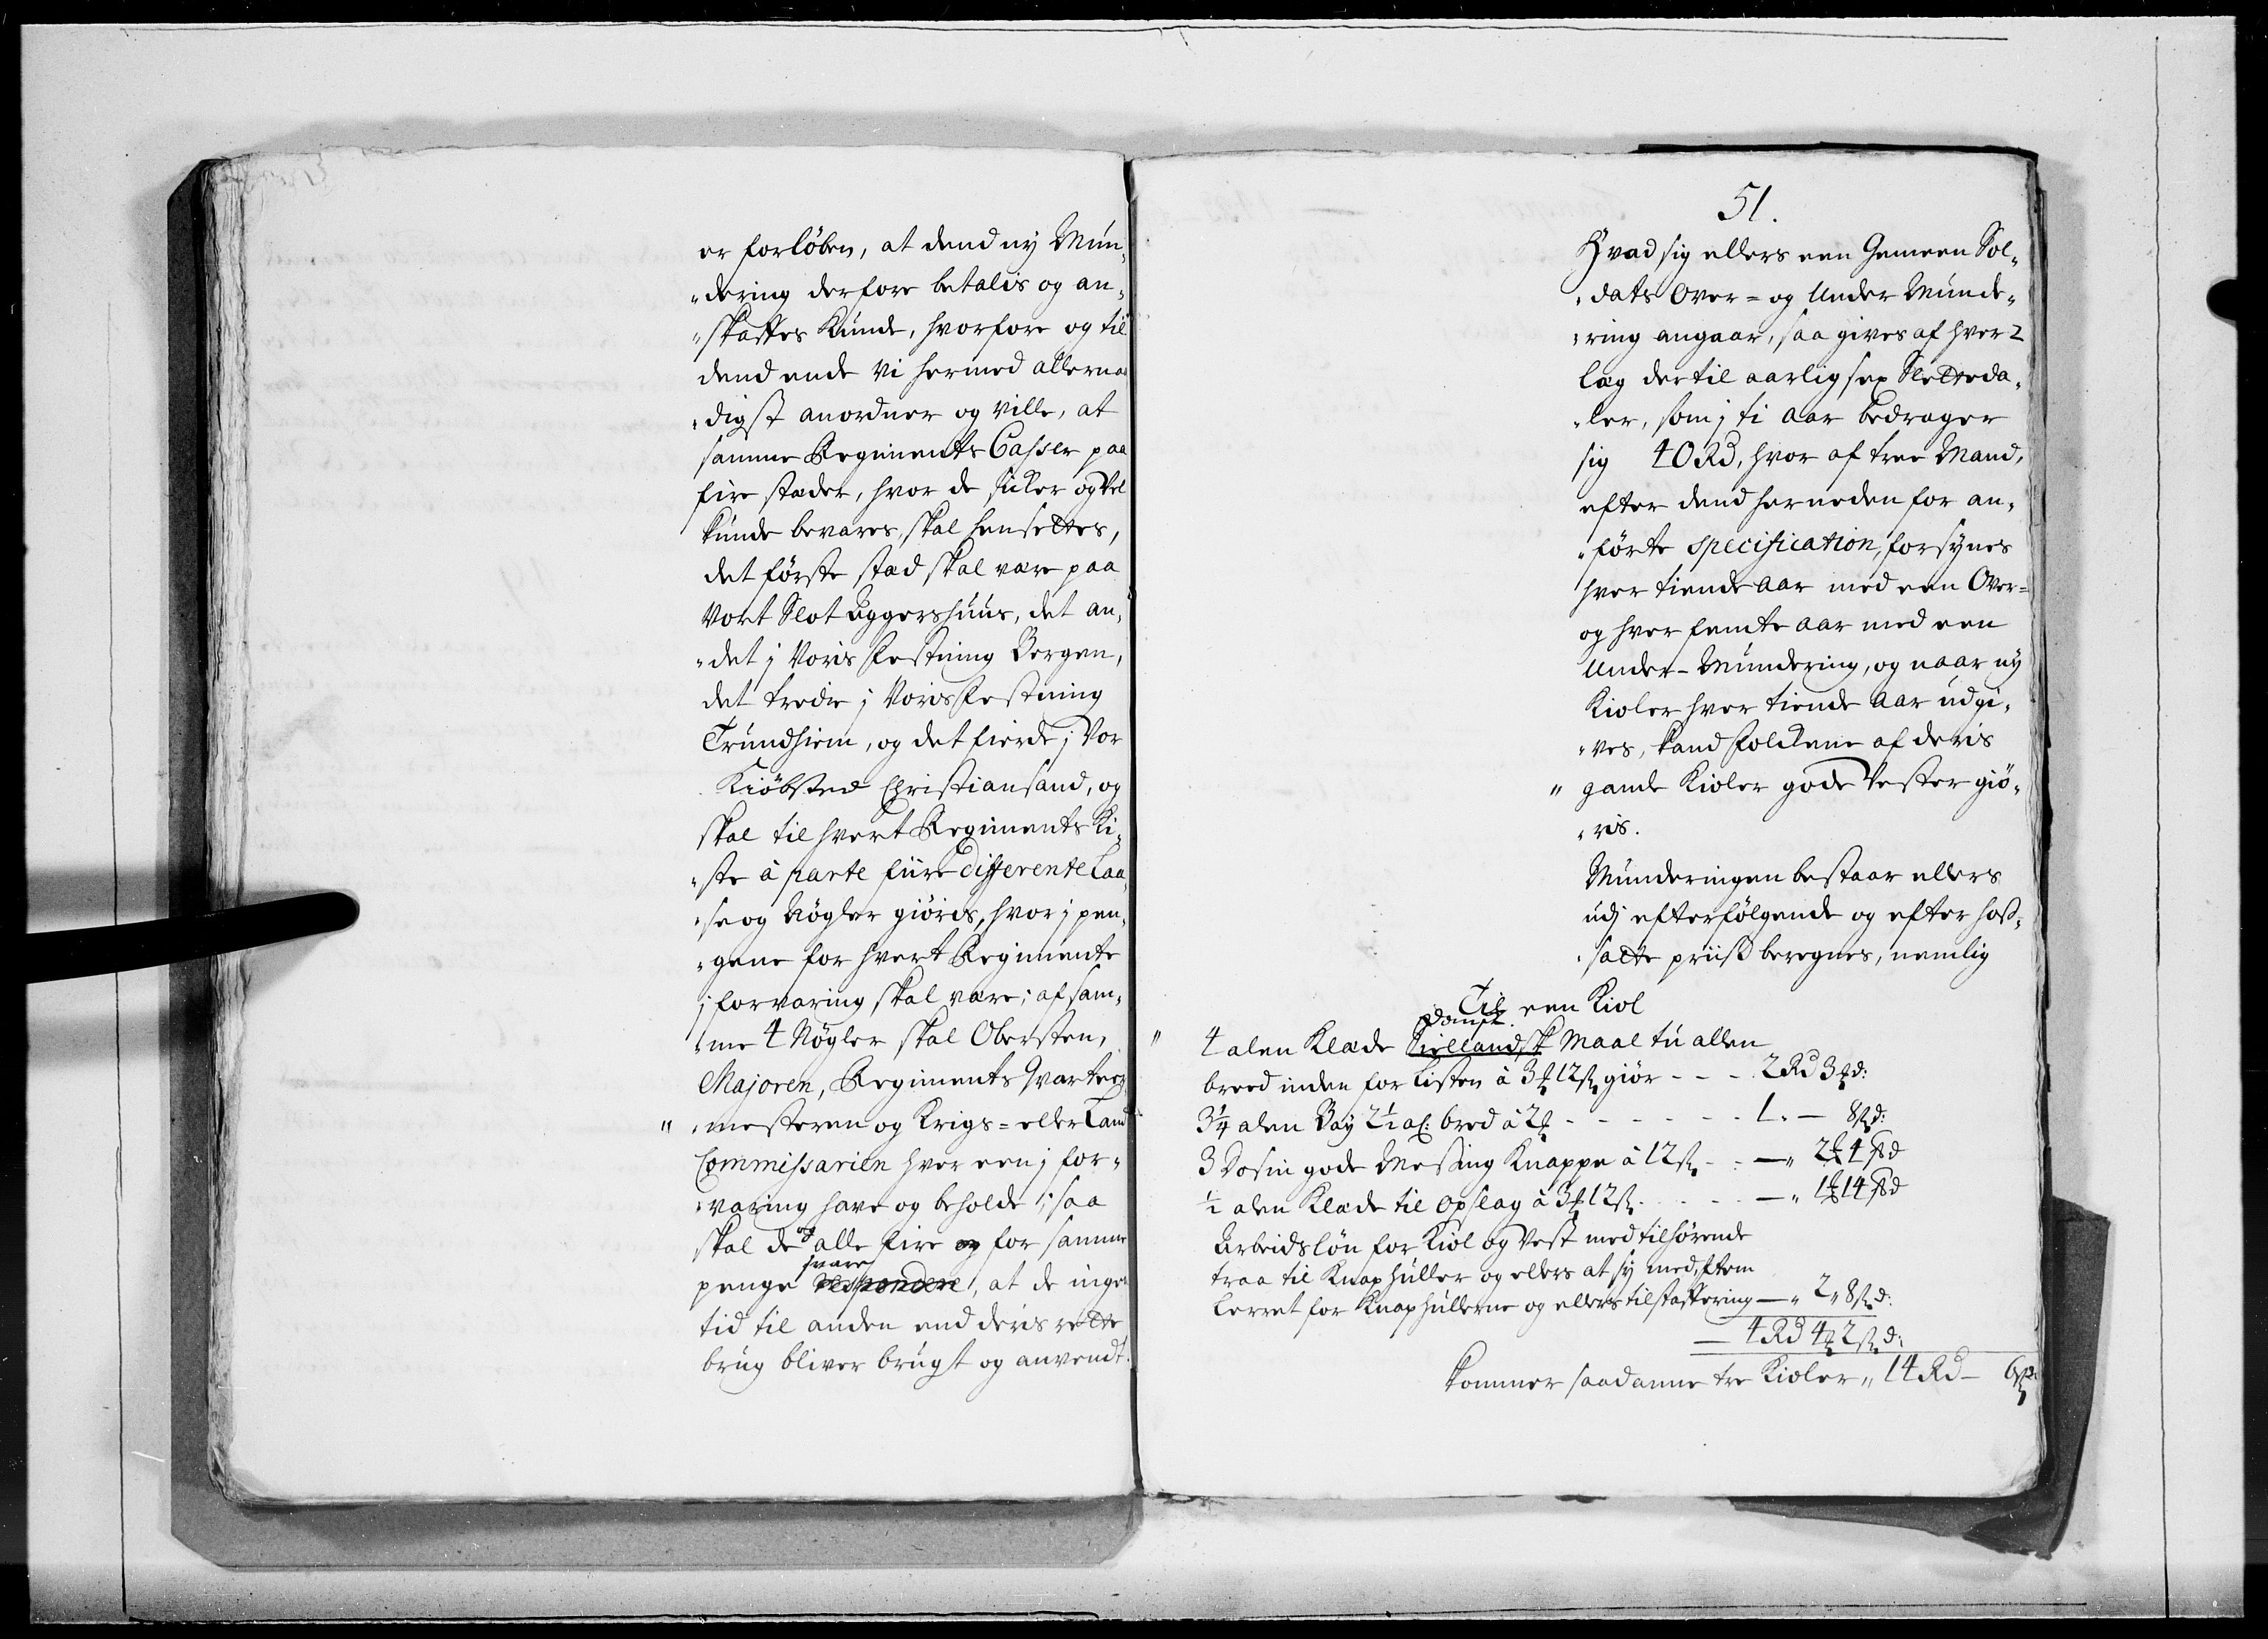 er forløben, at dend ny Mun„
„dering derfore betalis og an„
„skaffes kunde, hvorfore og til
dend ende Vi hermed allernaa
„digst anordner og ville, at
samme Regiments Casser paa
fire stæder, hvor de sicker og vel
kunde bevares, skal hensettes,
det første stæd skal være paa
Vort Slot Aggershuus, det an„
„det j Voris Festning Bergen,
det tredie j Voris Festning
Trundhiem, og det fierde j Vor
Kiøbsted Christiansand, og
skal til hvert Regiments Ki„
„ste à parte fiire differente Laa„
„se og Nøgler giøris, hvor j pen„
„gene for hvert Regimente
j forvaring skal være; af sam„
„me 4 Nøgler skal Obersten,
Majoren, Regiments Qvarteer„
„ „mesteren og Krigs= eller Land
Commissarien hver een j for„
„varing have og beholde; saa
skal de og alle fire og for samme
svare
penge respondere, at de ingen
tid til anden end deris rette
brug bliver brugt og anvendt.
51.
Hvad sig ellers een Gemeen Sol„
„dats Over= og Under Munde„
„ring angaar, saa gives af hver 2
læg dertil aarlig sex Slettedа„
„ler, som j ti aar bedrager
sig 40 Rd, hvor af tree Mand,
efter dend herneden for an„
„førte specification, forsynes
hver tiende aar med een Over=
og hver femte aar med een
Under-Mundering, og naar ny
Kioler hver tiende aar udgi„
„ves, kand Folckene af deris
„ gamle Kioler gode Vester giø„
„ris.
Munderingen bestaar ellers
udj efterfølgende og efter hoß„
„satte priiß beregnes, nemlig
Til een Kiol
Dansk
„ 4 alen Klæde Siellandsk Maal tu allen
breed inden for Listen à 3 ₻ 12 ß giør - - - 2 Rd 3 ₻ d:
3¼ alen Bay 2½ al: bred à 2 ₻ - - - - - - 1. — 8 ß d:
3 Dosin gode Messing Knappe à 12 ß - - —„ 2 ₻ 4 ß d
½ alen Klæde til Opslag à 3 ₻ 12 ß - - - - —„ 1 ₻ 14 ß d
Arbeidsløn for Kiol og Vest med tilhørende
traa til Knaphuller og ellers at sy med, Item
Lerret for Knaphullerne og ellers tilstaffering —„ 2„ 8 ß d:
— 4 Rd 4 ₻ 2 ß d:
kommer saadanne tre Kioler „ 14 Rd — 6 ß